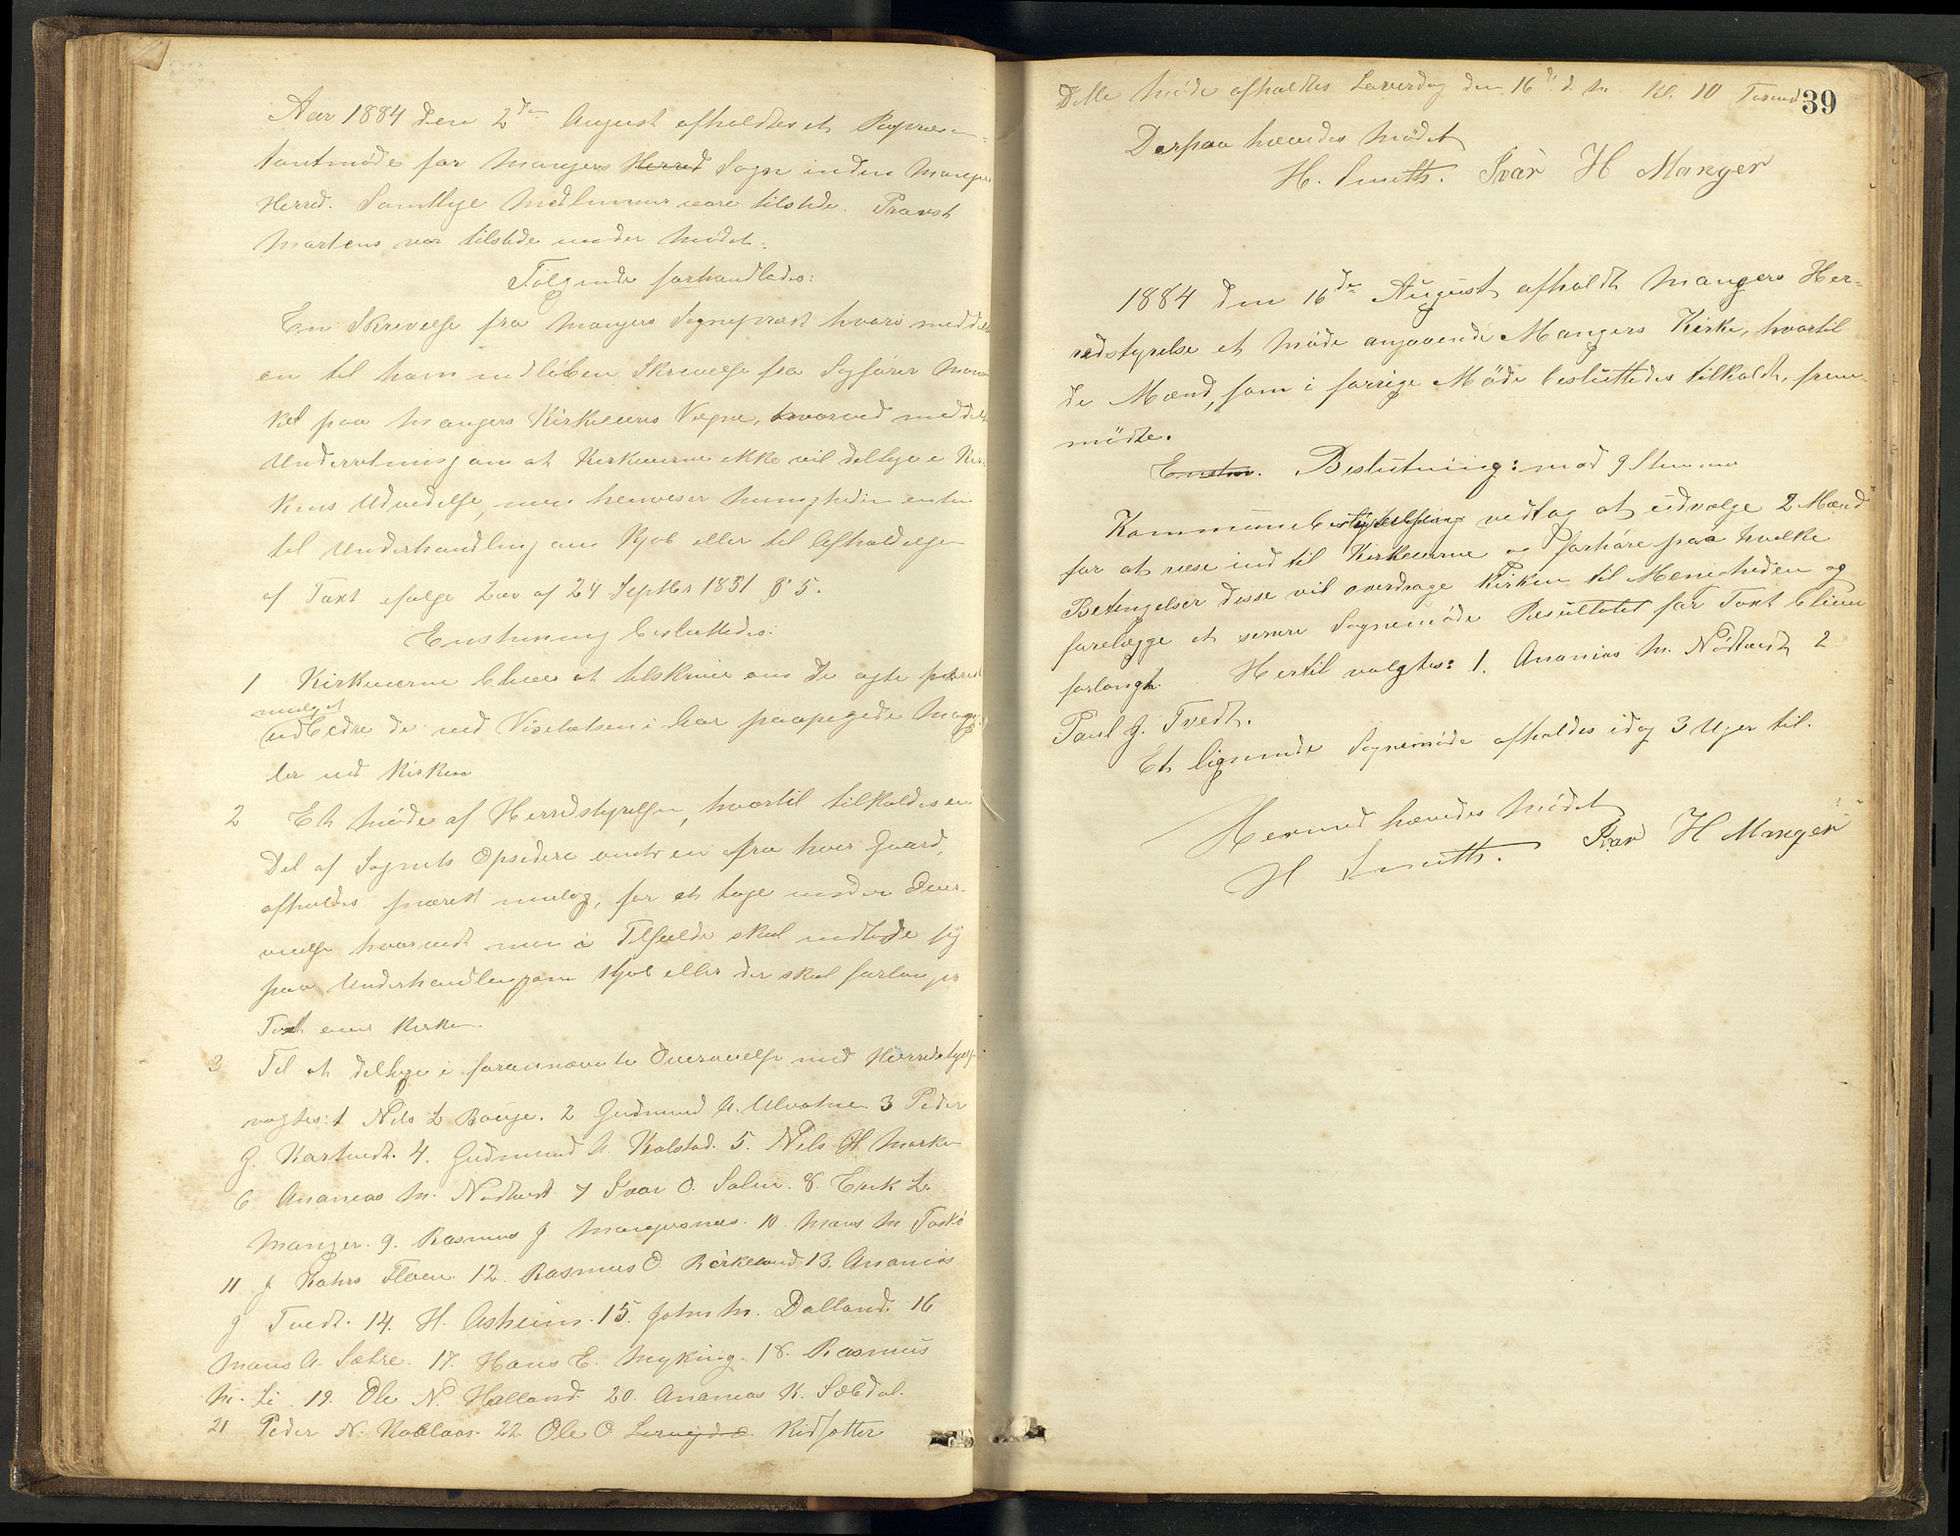 Aar 1884 den 2den August afholdtes et Repræsen-
tantmøde for Mangers Herred Sogn inden Mangers
Herred. Samtlige Medlemmer vare tilstede. Provst
Martens var tilstede under Mødet.
Følgende forhandledes:
En Skrivelse fra Mangers Sognepræst hvori meddeles
en til ham indløben Skrivelse fra Sagfører
paa Mangers Kirkeeieres Vegne, hvorved meddeles
Underretning om at Kirkeeierne ikke vil deltage i Kir-
kens Udvidelse, men henviser Menigheden enten
til Underhandling om Kjøb eller til Afholdelse
af Taxt ifølge Lov af 24 Septber 1831 § 5.
Enstemmig besluttedes:
1 Kirkeeierne bliver at tilskrive om de agte snarest
muligt
udbedre de ved Visitatsen i Aar paapegede Mang-
ler ved Kirken
2 Et Møde af Herredstyrelsen, hvortil tilkaldes en
Del af Sognets Opsidere omtr en fra hver Gaard,
afholdes snarest mulig, for at tage under Over-
veielse hvorvidt man i Tilfælde skal indlade sig
paa Underhandling om Kjøb eller der skal forlanges
Taxt over Kirken.
3 Til at deltage i forannævnte Overveielse med Herredstyrelsen
valgtes: 1 Nils L Bøuge. 2 Gudmund A. Ulvatne. 3 Peder
G. Kartvedt. 4. Gudmund A Kolstad. 5. Nils H Marken
6 Ananias M. Nødtvedt 7 Ivar O. Solem. 8. Erik L.
Manger. 9. Rasmus J Mangersnes. 10. Mons M Toske
11 J Kahrs Floen. 12. Rasmus O. Birkeland 13. Ananias
J Tvedt. 14. H. Askeim. 15. John M. Dalland. 16
Mons A. Sætre. 17. Hans E. Myking. 18. Rasmus
M. Li. 19. Ole N. Halland. 20. Ananias K. Sæbdal.
21 Peder N. Kollaas. 22 Ole O Lervigdal. Ridjotter
Dette Møde afholdtes Løverdag den 16d d. M. Kl. 10 Formd 39
Derpaa hævedes Mødet
H. Smith. Ivar H Manger
1884 den 16de August afholdt Mangers Her-
redstyrelse et Møde angaaende Mangers Kirke, hvortil
de Mænd, som i forrige Møde besluttedes tilkaldt, frem-
mødte.
Enstem. Beslutning: mod 9 Stemmer
Kommunebestyrelsen vedtog at udvælge 2 Mænd
for at reise ind til Kirkeeierne og forhøre paa hvilke
Betingelser disse vil overdrage Kirken til Menigheden og
forelægge et senere Sognemøde Resultatet før Taxt bliver
forlangt. Hertil valgtes: 1. Ananias M. Nødtvedt 2
Poul J. Tvedt.
Et lignende Sognemøde afholdes idag 3 Uger til.
Hermed hævedes Mødet
H Smith. Ivar H Manger